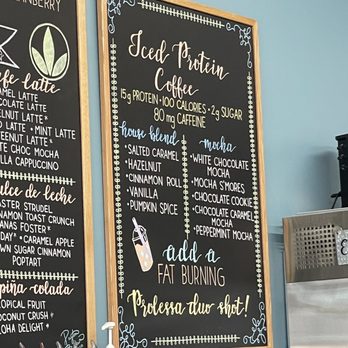 RANBERRY
fe latte
AMEL LATTE
COLATE LATTE
ELNUT LATTE*
TO *MINT LATTE
EENUT LATTE*
TE CHOC MOCHA
LLA CAPPUCCINO
ulce de leche
EASTER STRUDEL
NNAMON TOAST CRUNCH
ANAS FOSTER*
DAY* *CARAMEL APPLE
WN SUGAR CINNAMON
POPTART
piña colada
OPICAL FRUIT
OCONUT CRUSH*
OHA DELIGHT *
Iced Protein
Coffee
15g PROTEIN • 100 CALORIES • 2g SUGAR
80 mg CAFFEINE
house blend
*SALTED CARAMEL
*HAZELNUT
*CINNAMON ROLL
*VANILLA
*PUMPKIN SPICE
mocha
*WHITE CHOCOLATE
MOCHA
*MOCHA S'MORES
*CHOCOLATE COOKIE
*CHOCOLATE CARAMEL
MOCHA
*PEPPERMINT MOCHA
add a
FAT BURNING
Prolessa duo shot!